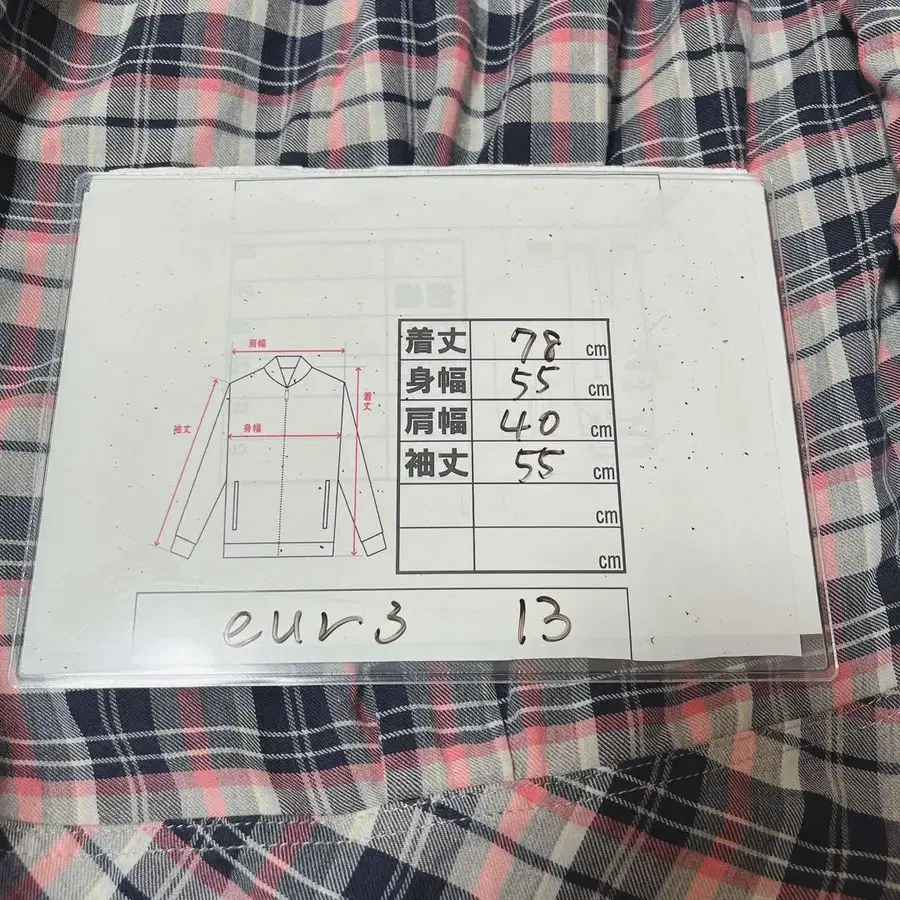 肩幅
着丈
袖丈
身幅
着丈 78 cm
身幅 55 cm
肩幅 40 cm
袖丈 55 cm
cm
cm
eur3 13